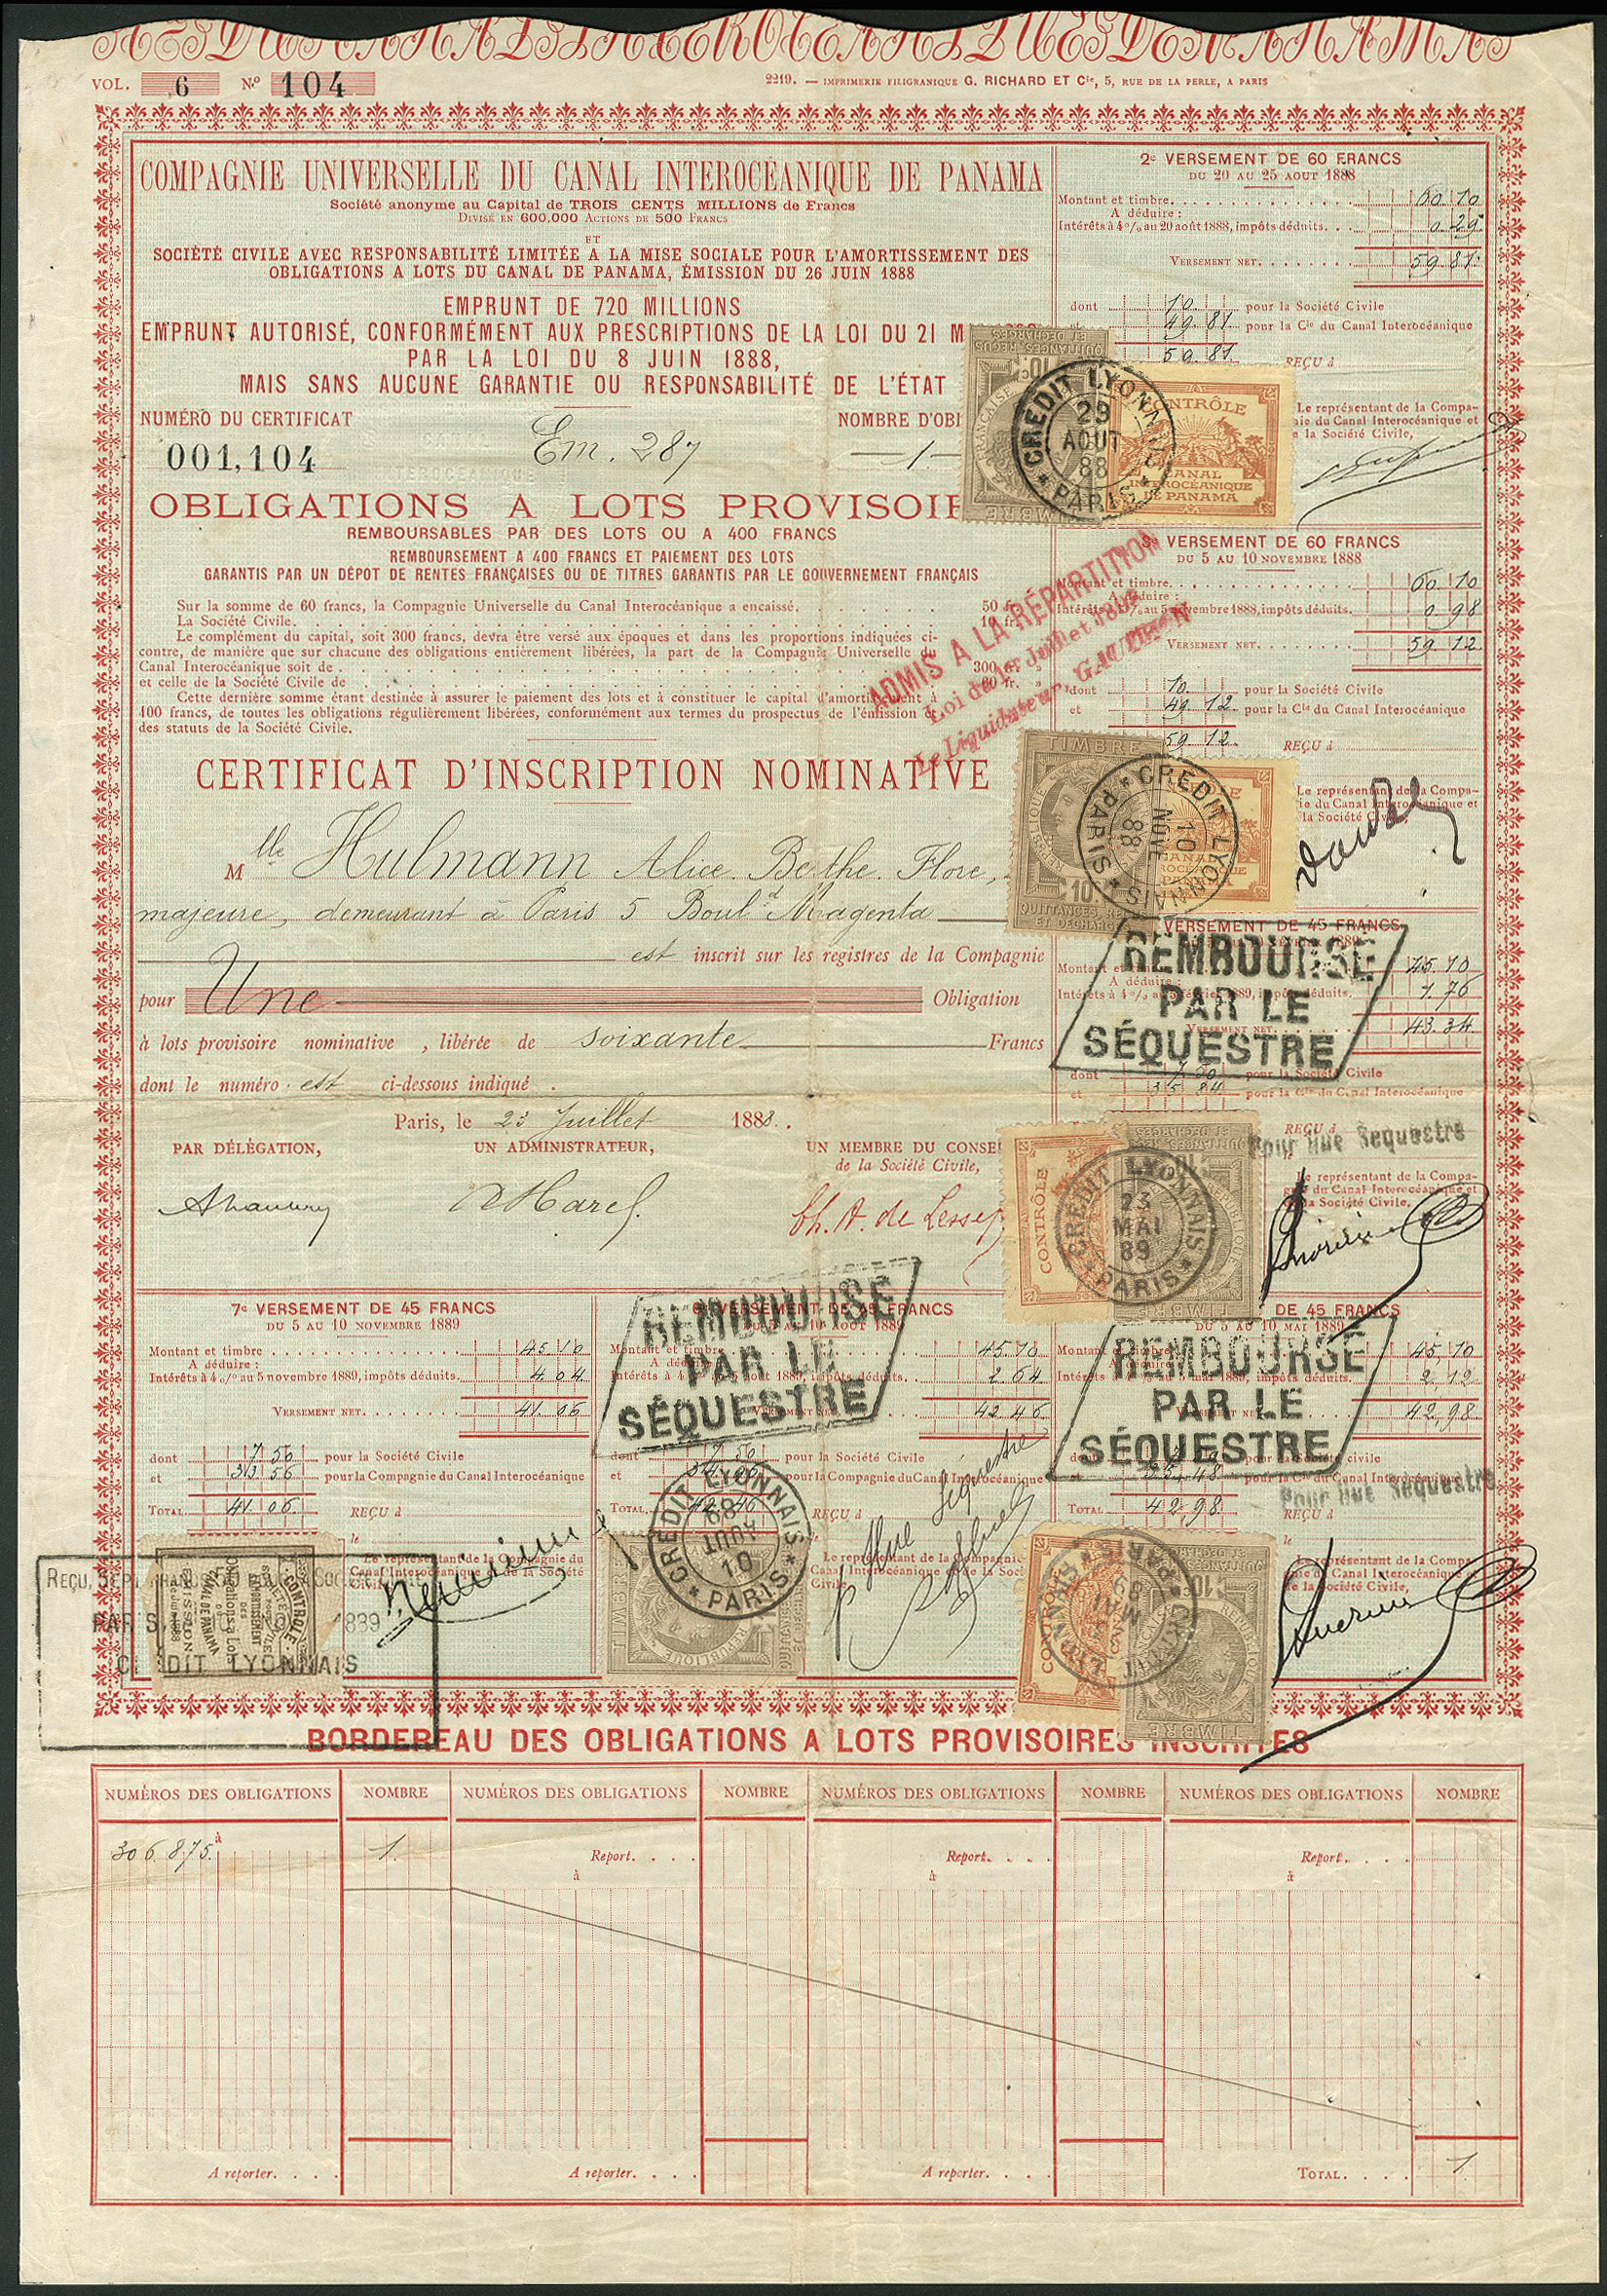 VOL. 6 Nº 104
2219. — IMPRIMERIE FILIGRANIQUE G. RICHARD ET Cie, 5, RUE DE LA PERLE, A PARIS
COMPAGNIE UNIVERSELLE DU CANAL INTEROCÉANIQUE DE PANAMA
Société anonyme au Capital de TROIS CENTS MILLIONS de Francs
DIVISÉ EN 600.000 ACTIONS DE 500 FRANCS
ET
SOCIÉTÉ CIVILE AVEC RESPONSABILITÉ LIMITÉE A LA MISE SOCIALE POUR L'AMORTISSEMENT DES
OBLIGATIONS A LOTS DU CANAL DE PANAMA, ÉMISSION DU 26 JUIN 1888
EMPRUNT DE 720 MILLIONS
EMPRUNT AUTORISÉ, CONFORMÉMENT AUX PRESCRIPTIONS DE LA LOI DU 21 M
PAR LA LOI DU 8 JUIN 1888,
MAIS SANS AUCUNE GARANTIE OU RESPONSABILITÉ DE L'ÉTAT
NUMÉRO DU CERTIFICAT
NOMBRE D'OBL
001,104
Em. 287
— 1 —
OBLIGATIONS A LOTS PROVISOIR
REMBOURSABLES PAR DES LOTS OU A 400 FRANCS
REMBOURSEMENT A 400 FRANCS ET PAIEMENT DES LOTS
GARANTIS PAR UN DÉPOT DE RENTES FRANÇAISES OU DE TITRES GARANTIS PAR LE GOUVERNEMENT FRANÇAIS
Sur la somme de 60 francs, la Compagnie Universelle du Canal Interocéanique a encaissé. 50 fr.
La Société Civile. 10 fr.
Le complément du capital, soit 300 francs, devra être versé aux époques et dans les proportions indiquées ci-
contre, de manière que sur chacune des obligations entièrement libérées, la part de la Compagnie Universelle du
Canal Interocéanique soit de . 300 fr.
et celle de la Société Civile de . 60 fr.
Cette dernière somme étant destinée à assurer le paiement des lots et à constituer le capital d'amortissement à
400 francs, de toutes les obligations régulièrement libérées, conformément aux termes du prospectus de l'émission et
des statuts de la Société Civile.
ADMIS A LA RÉPARTITION
Loi du 1er Juillet 1893
Le Liquidateur, GAUTRON
CERTIFICAT D'INSCRIPTION NOMINATIVE
Mlle Hulmann Alice Berthe Flore,
majeure, demeurant à Paris 5 Boulᵈ Magenta
est inscrit sur les registres de la Compagnie
pour Une Obligation
à lots provisoire nominative , libérée de soixante Francs
dont le numéro est ci-dessous indiqué .
Paris, le 23 Juillet 1888.
PAR DÉLÉGATION,
UN ADMINISTRATEUR,
UN MEMBRE DU CONSEI
de la Société Civile,
Ch. A. de Lesseps
2e VERSEMENT DE 60 FRANCS
DU 20 AU 25 AOUT 1888
Montant et timbre. 60 10
A déduire :
Intérêts à 4 % au 20 août 1888, impôts déduits. 0. 29
VERSEMENT NET. 59 81
dont 10. pour la Société Civile
49. 81 pour la Cie du Canal Interocéanique
59. 81
REÇU à
Le représentant de la Compa-
nie du Canal Interocéanique et
e la Société Civile,
QUITTANCES REÇUS
ET DÉCHARGES
10c
TIMBRE
CREDIT LYONNAIS
29
AOUT
88
PARIS
CONTRÔLE
CANAL
INTEROCÉANIQUE
DE PANAMA
VERSEMENT DE 60 FRANCS
DU 5 AU 10 NOVEMBRE 1888
Montant et timbre. 60 10
A déduire :
Intérêts à 4 % au 5 novembre 1888, impôts déduits. 0. 98
VERSEMENT NET. 59 12
dont 10. pour la Société Civile
et 49. 12 pour la Cie du Canal Interocéanique
59 12
REÇU à
Le représentant de la Compa-
ie du Canal Interocéanique et
la Société Civile,
TIMBRE
10c
QUITTANCES REÇ
ET DÉCHARG
CREDIT LYONNAIS
10
NOVE
88
PARIS
VERSEMENT DE 45 FRANCS
45. 10
1. 76
VERSEMENT NET. 43. 34
REMBOURSÉ
PAR LE
SÉQUESTRE
dont 7. 50 pour la Société Civile
et 35. 84 pour la Cie du Canal Interocéanique
REÇU à
Pour Mue Sequestre
e représentant de la Compa-
CONTRÔLE
CREDIT LYONNAIS
23
MAI
89
PARIS
TIMBRE
7e VERSEMENT DE 45 FRANCS
DU 5 AU 10 NOVEMBRE 1889
Montant et timbre 45 10
A déduire :
Intérêts à 4 o/o au 5 novembre 1889, impôts déduits. 4. 04
VERSEMENT NET. 41. 06
dont 7. 50 pour la Société Civile
et 33 56 pour la Compagnie du Canal Interocéanique
TOTAL 41 06
REÇU à
le
Le représentant de la Compagnie du
Canal Interocéanique et de la Société
CONTRÔLE
CREDIT LYONNAIS
VERSEMENT DE 45 FRANCS
DU 5 AU 10 AOUT 1889
Montant et timbre 45 10
A déduire
Intérêts à 4 août 1889, impôts déduits. 2 64
42 46
REMBOURSÉ
PAR LE
SÉQUESTRE
dont 7 50 pour la Société Civile
et 34. 96 pour la Compagnie du Canal Interocéanique
TOTAL. 42 46
REÇU à
p. Mue Sequestre
CREDIT LYONNAIS
10
AOUT
89
PARIS
TIMBRE
DE 45 FRANCS
DU 5 AU 10 MAI 1889
45, 10
2, 12
42, 98
REMBOURSÉ
PAR LE
SÉQUESTRE
TOTAL 42, 98
REÇU à
Pour Mue Sequestre
CONTRÔLE
CREDIT LYONNAIS
MAI
PARIS
10c
TIMBRE
BORDEREAU DES OBLIGATIONS A LOTS PROVISOIRES INSCRITES
NUMÉROS DES OBLIGATIONS NOMBRE NUMÉROS DES OBLIGATIONS NOMBRE NUMÉROS DES OBLIGATIONS NOMBRE NUMÉROS DES OBLIGATIONS NOMBRE
306.875 à 1. Report. . . . Report. . . . Report. . . .
à à à
A reporter. . . . A reporter. . . . A reporter. . . . TOTAL. . . . 1